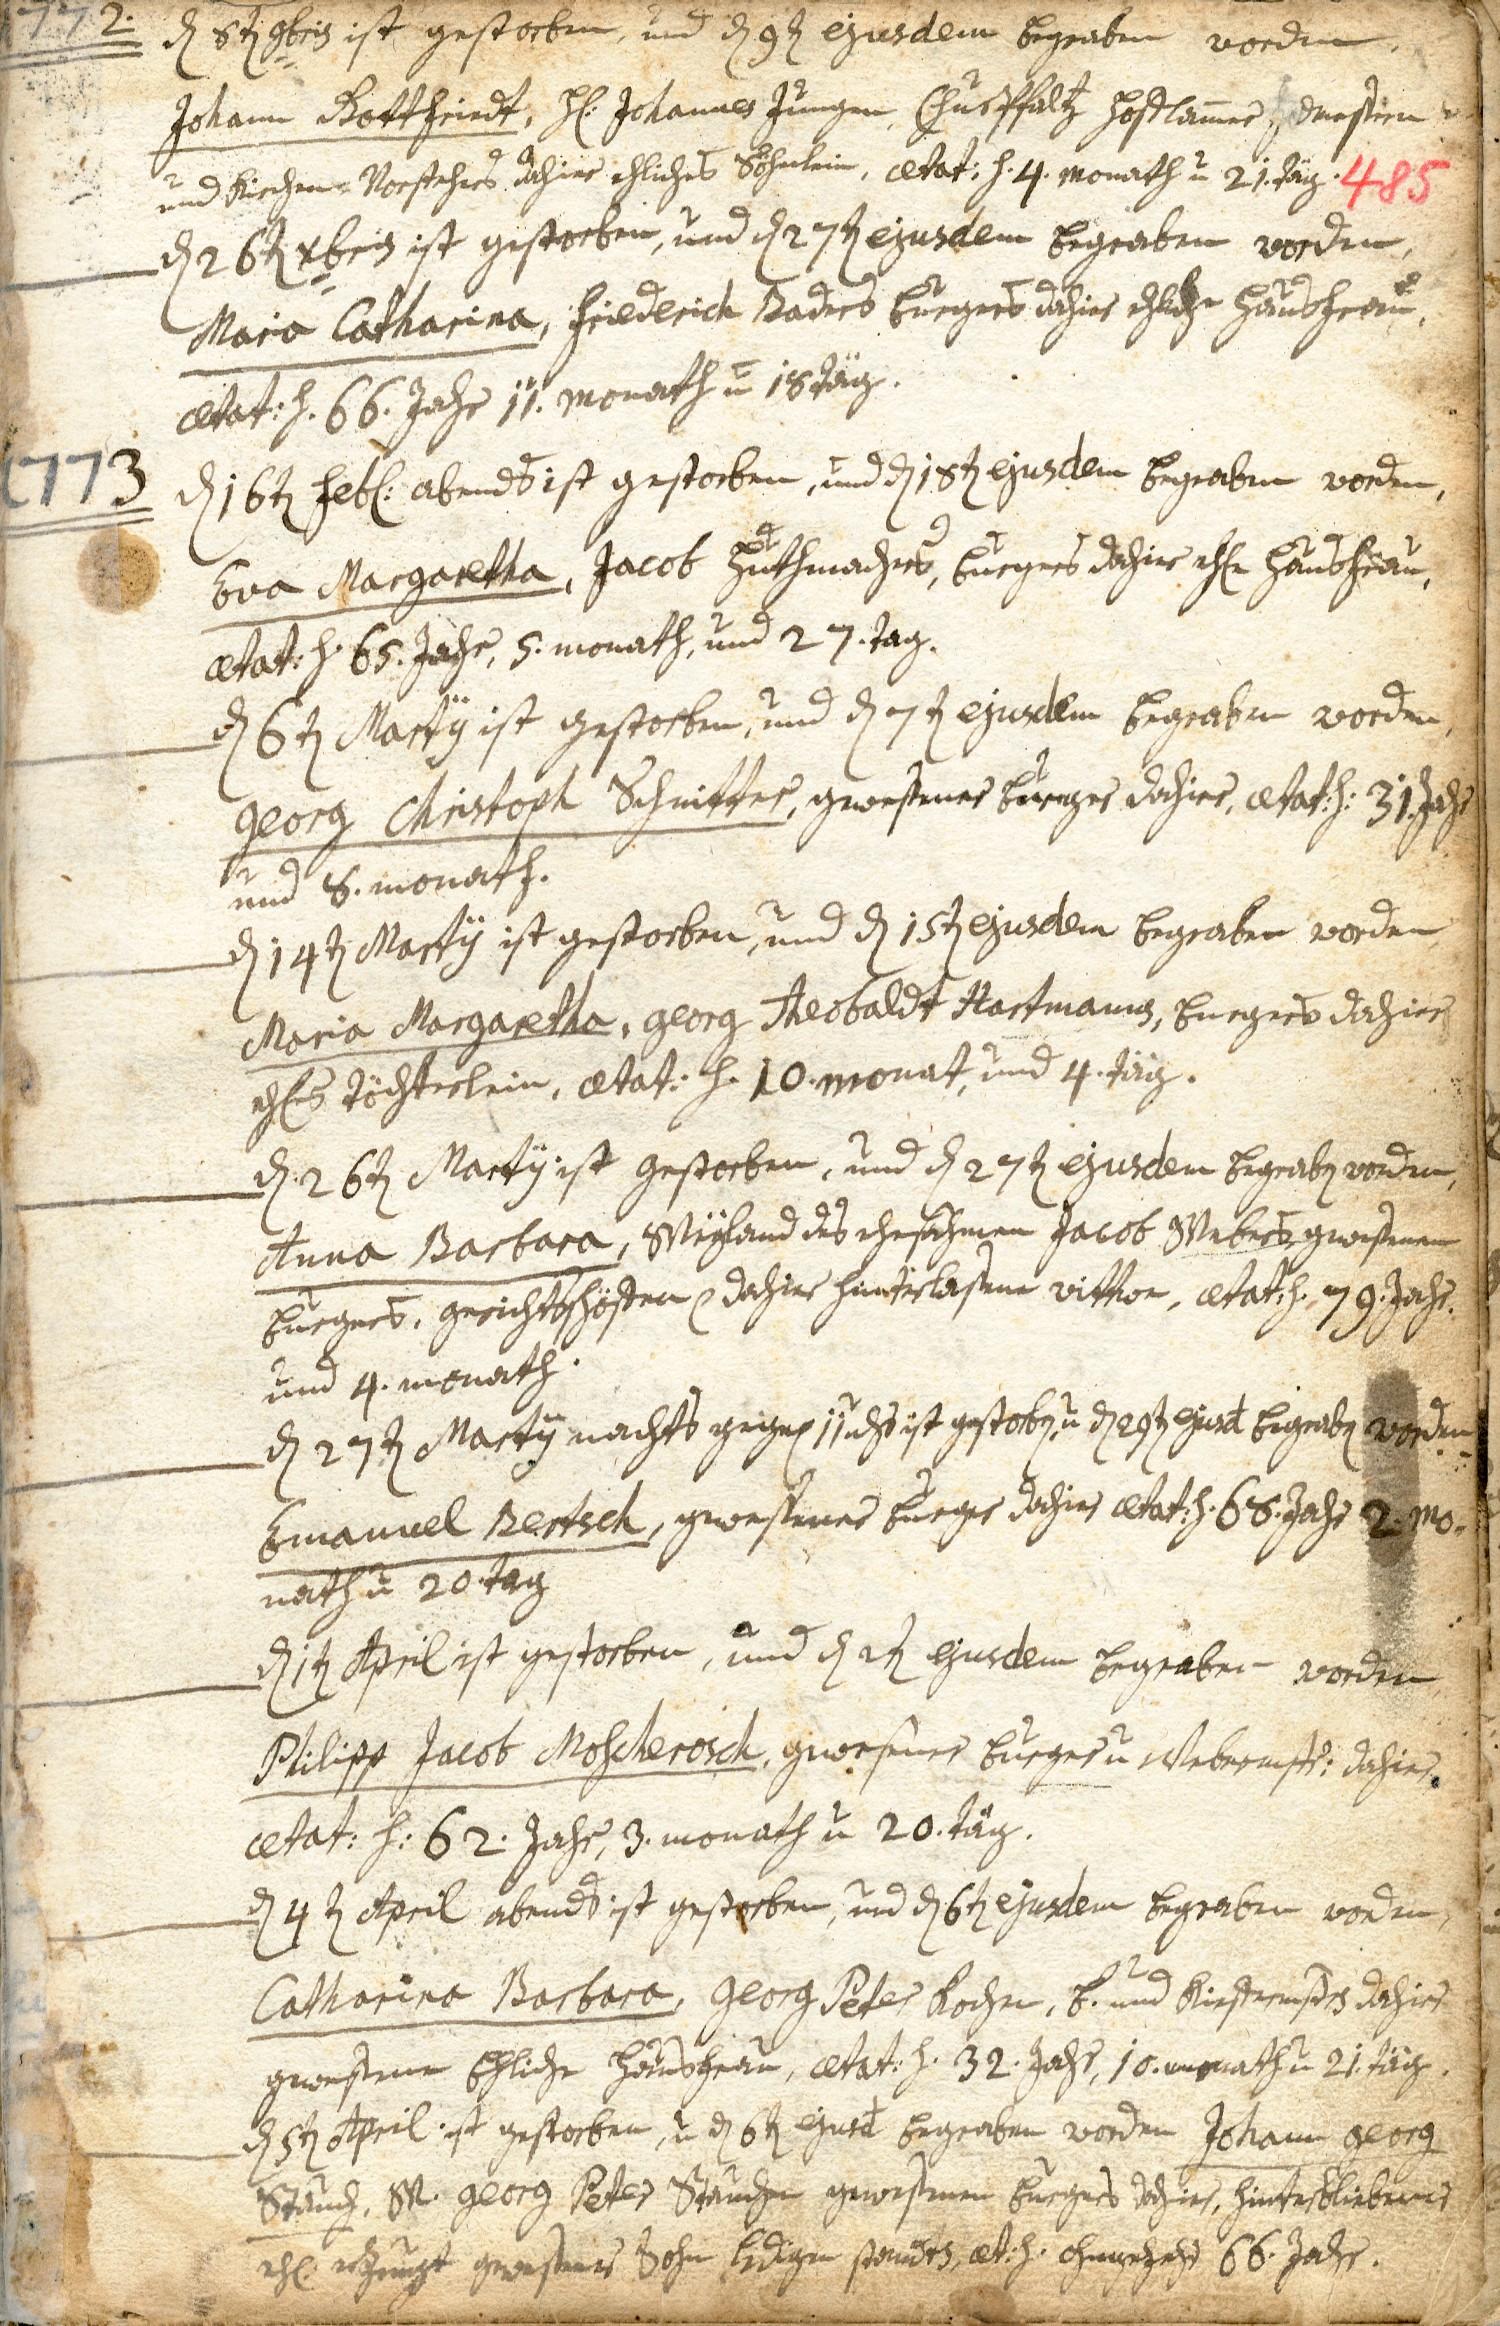 1772. d 8t 9bris ist gestorben, und d 9t ejusdem begraben worden,
Johann Gottfriedt, H: Johannes Jungen, ChurPfaltz
und Kirchen-Vorstehers dahier ehliches Söhnlein, ætat: h. 4. monath u 21. täg. 485
d 26t xbris ist gestorben, und d 27t ejusdem begraben worden,
Maria Catharina, Friederich Baders burgers dahier ehliche Haußfrau,
ætat: h. 66. Jahr 11. monath u 18 täg.
1773 d 16t Feb: abends ist gestorben, und d 18t ejusdem begraben worden,
Eva Margaretha, Jacob Huthmachers, burgers dahier ehl Haußfrau,
ætat: h. 65. Jahr, 5. monath, und 27. tag.
d 6t Martÿ ist gestorben, und d 7t ejusdem begraben worden,
Georg Christoph Schnitter, gewesener burger dahier, ætat: h: 31. Jahr
und 8. monath.
d 14t Martÿ ist gestorben, und d 15t ejusdem begraben worden
Maria Margaretha, Georg Theobaldt Hartmanns, burgers dahier
ehls Töchterlein, ætat: h. 10. monat, und 4. täg.
d. 26t Martÿ ist gestorben, und d 27t ejusdem begraben worden,
Anna Barbara, Weÿland des ehrsahmen Jacob Webers gewesenen
burgers, gerichtsschöffen dahier hinterlassene wittwe, ætat: h. 79. Jahr.
und 4. monath.
d 27t Martÿ nachts gegen 11 uhr ist gestorben, u d 29t ejusd begraben worden
Emanuel Bertsch, gewesener burger dahier ætat: h. 68. Jahr 2. mo-
nath u 20. tag
d 1t April ist gestorben, und d 2t ejusdem begraben worden
Philipp Jacob Moscherosch, gewesener burger u Webermstr: dahier,
ætat: h: 62. Jahr, 3. monath u 20. täg.
d 4t April abends ist gestorben, und d 6t ejusdem begraben worden,
Catharina Barbara, Georg Peter Kochen, b. und dahier
gewesene Ehliche Haußfrau, ætat: h. 32. Jahr, 10. monath u 21. täg.
d 5t April ist gestorben, u d 6t ejusd begraben worden Johann Georg
Stauch, W. Georg Peter Stauchen gewesenen burgers dahier, hinterbliebener
ehl: erzeugt gewesener Sohn ledigen standes, æt: h. ohngefehr 66. Jahr.